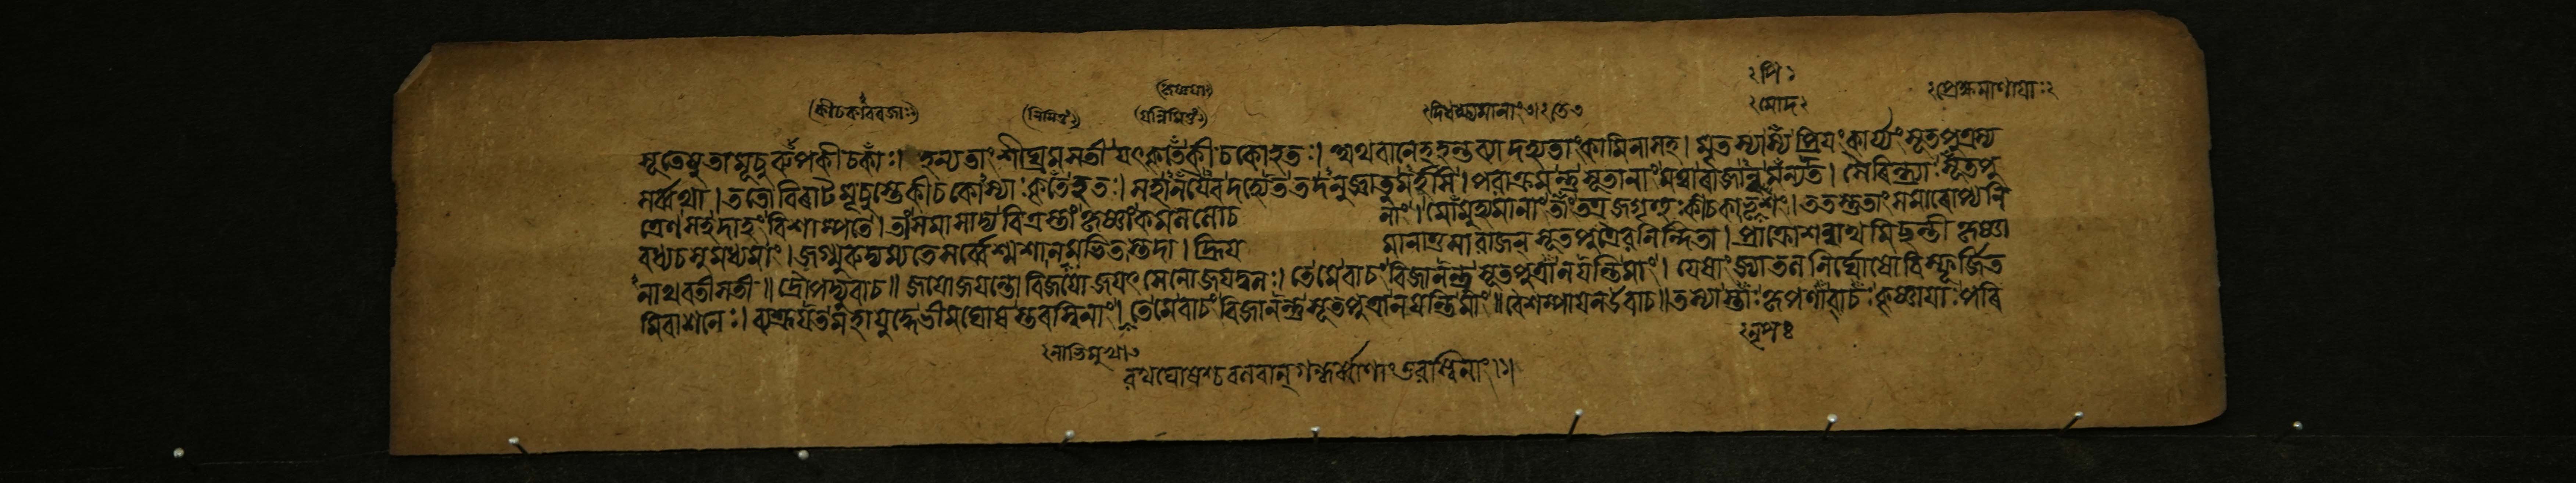 পি
প্রেক্ষমাণায়াঃ
মোদ
সূতেষু তামূচুরুপকীচকাঃ। হন্যতাং শীঘ্রমসতী যৎকৃতে কীচকো হতঃ। অথবা নেহ হন্তব্যা দহ্যতাং কামিনা সহ। মৃতস্যাস্য প্রিয়ং কার্য্যং সূতপুত্রস্য
সর্ব্বথা। ততো বিরাটমূচুস্তে কীচকোস্যাঃ কৃতে হতঃ। সহানেনৈব দহ্যেত তদনুজ্ঞাতুমর্হসি। পরাক্রমন্তু সূতানাং মত্বা রাজান্বমন্যত। সৈরিন্ধ্র্যাঃ সূতপু
ত্রেণ সহ দাহং বিশাম্পতে। তাং সমাসাদ্য বিত্রস্তাং কৃষ্ণাং কমললোচ নাং। মোমুহ্যমানাং তাং তত্র জগৃহুঃ কীচকা ভৃশং। ততস্তু তাং সমারোপ্য নি
বধ্য চ সুমধ্যমাং। জগ্মুরুদ্যম্য তে সর্ব্বে শ্মশানমভিতস্তদা। হ্রিয় মাণা তু সা রাজন্ সূতপুত্রৈরনিন্দিতা। প্রাক্রোশন্নাথমিচ্ছন্তী কৃষ্ণা
নাথবতী সতী॥ দ্রৌপদ্যুবাচ॥ জয়ো জয়ন্তো বিজয়ো জয়ৎসেনো জয়দ্বলঃ। তে মে বাচং বিজানন্তু সূতপুত্রা নয়ন্তি মাং। যেষাং জ্যাতলনির্ঘোষো বিস্ফূর্জিত
মিবাশনেঃ। ব্যশ্রূয়ত মহাযুদ্ধে ভীমঘোষস্তরস্বিনাং। তে মে বাচং বিজানন্তু সূতপুত্রা নয়ন্তি মাং॥ বৈশম্পায়ন উবাচ॥ তস্যাস্তাঃ কৃপণা বাচঃ কৃষ্ণায়াঃ পরি
নৃপ
রথঘোষশ্চ বলবান্ গন্ধর্ব্বাণাং তরস্বিনাং।।